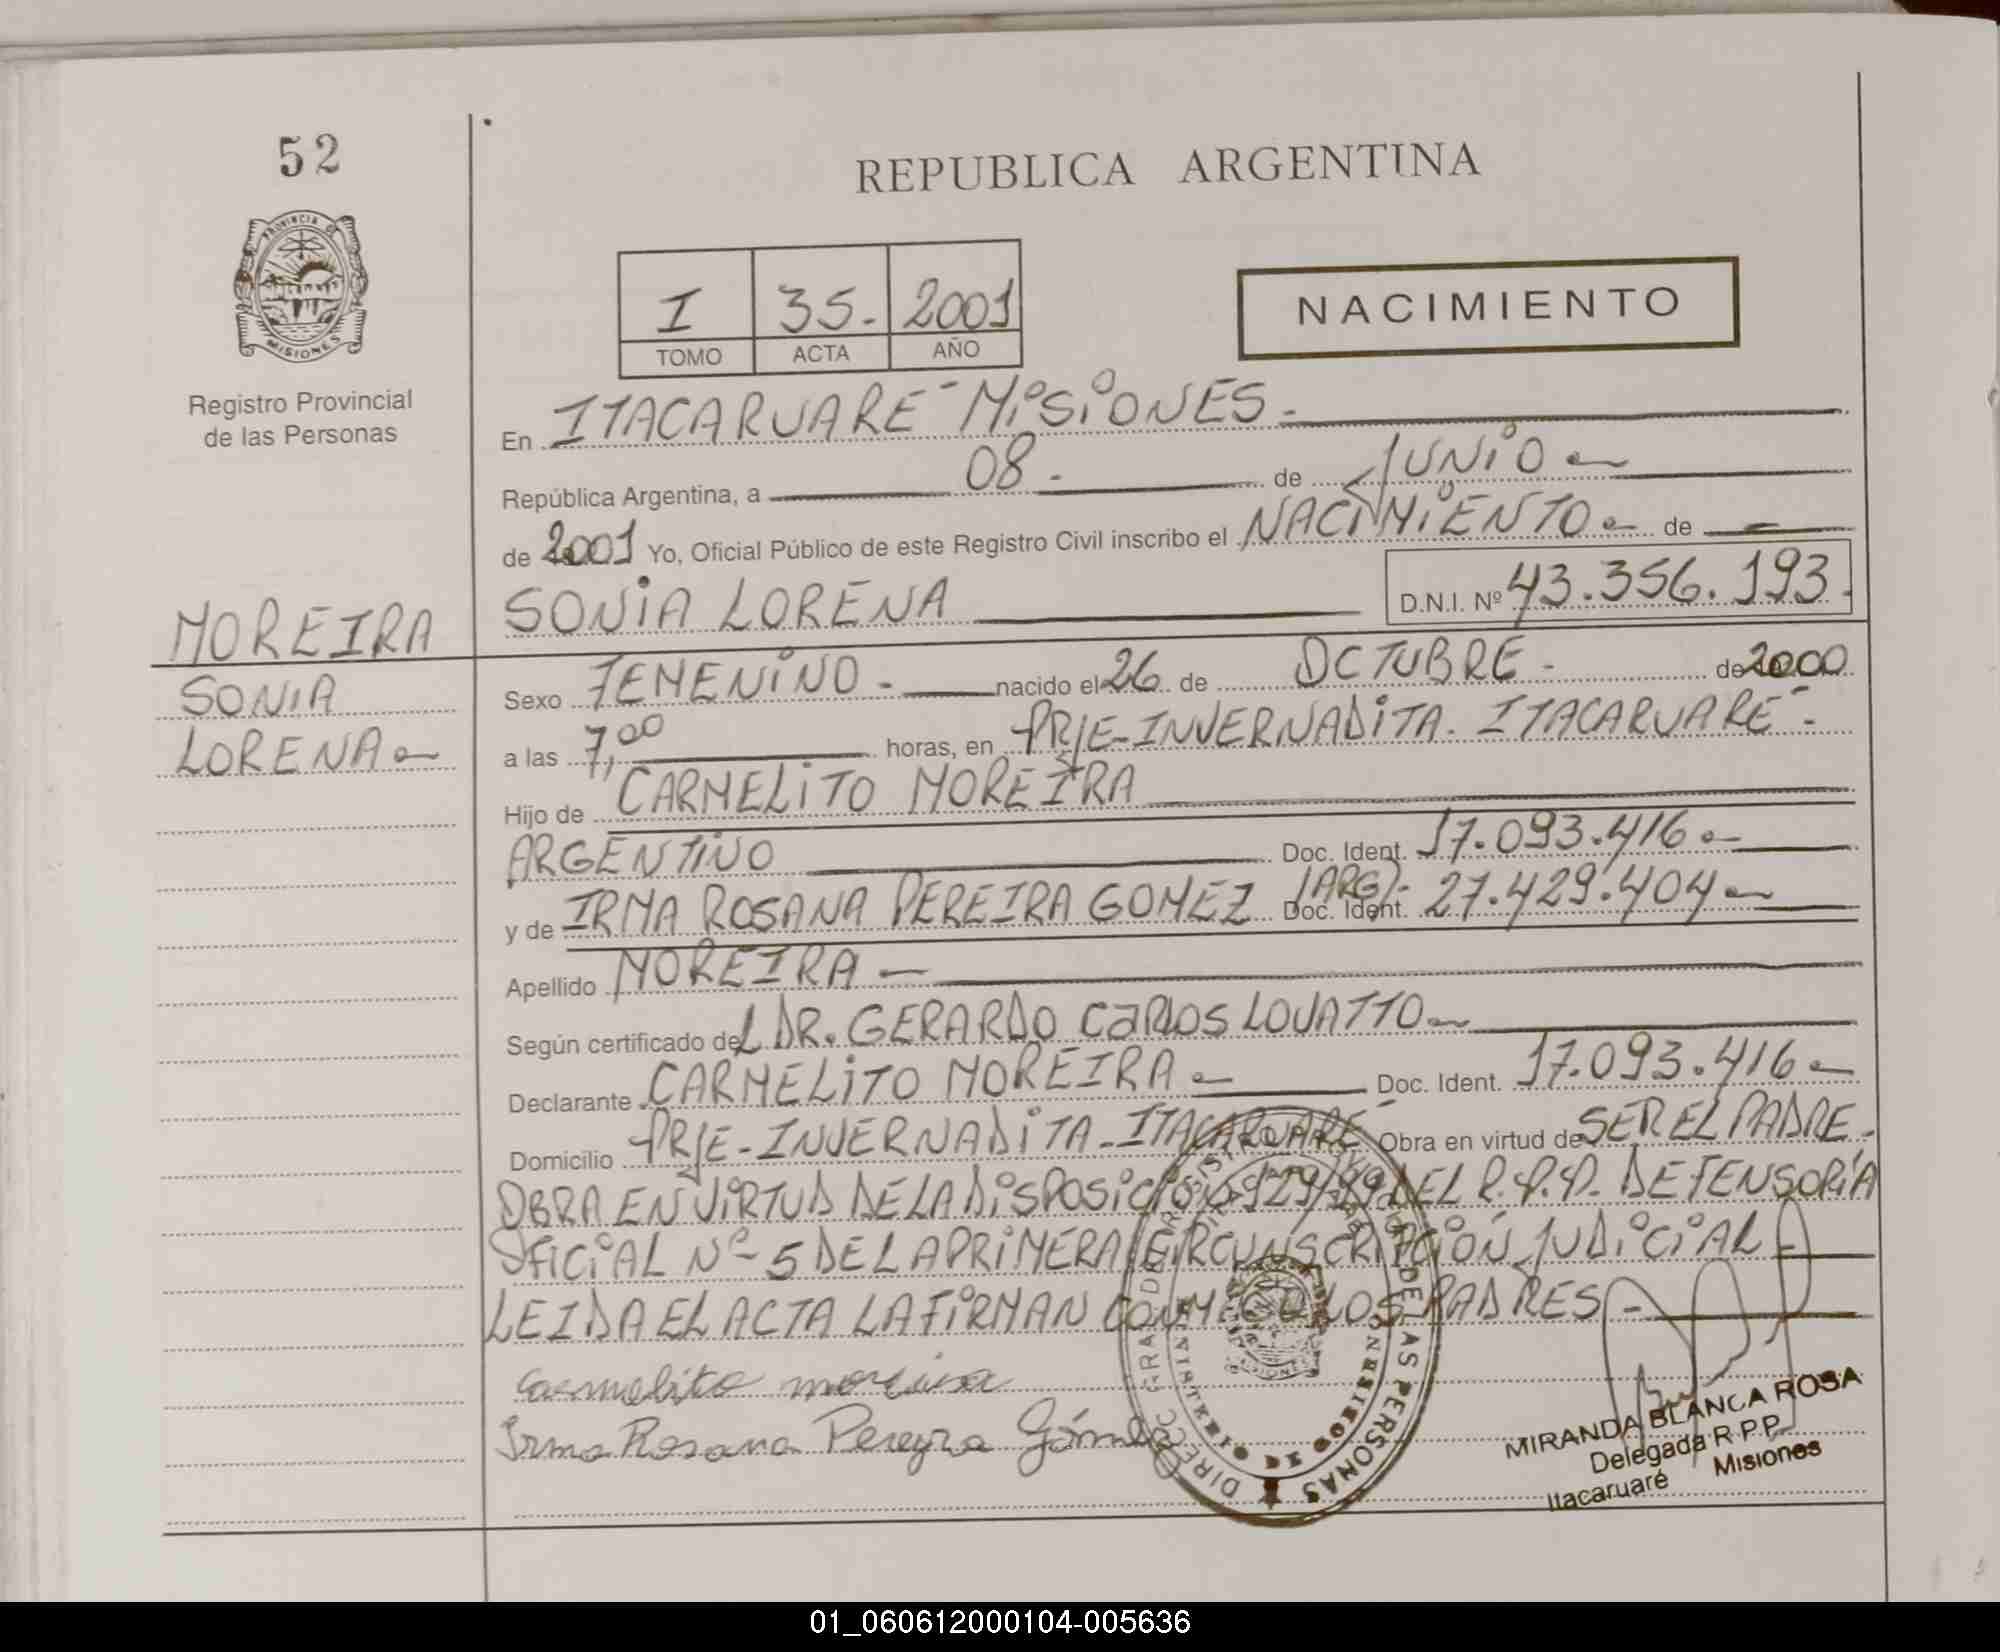 52
REPUBLICA ARGENTINA
PROVINCIA DE
MISIONES
Registro Provincial
de las Personas
I 35.- 2001
TOMO ACTA AÑO
NACIMIENTO
En ITACARUARÉ MISIONES.-
República Argentina, a 08.- de JUNIO
de 2001 Yo, Oficial Público de este Registro Civil inscribo el NACIMIENTO de
MOREIRA
SONIA LORENA D.N.I. Nº 43.356.193.
SONIA
LORENA
Sexo FEMENINO.- nacido el 26 de OCTUBRE.- de 2000
a las 7,00 horas, en PRJE-INVERNADITA-ITACARUARÉ.
Hijo de CARMELITO MOREIRA
ARGENTINO Doc. Ident. 17.093.416
y de IRMA ROSANA PEREIRA GOMEZ (ARG).- Doc. Ident. 27.429.404
Apellido MOREIRA
Según certificado del DR. GERARDO CARLOS LOVATTO
Declarante CARMELITO MOREIRA Doc. Ident. 17.093.416
Domicilio PRJE-INVERNADITA-ITACARUARÉ Obra en virtud de SER EL PADRE.
OBRA EN VIRTUD DE LA DISPOSICIÓN 929/99 DEL R.P.P. DEFENSORÍA
OFICIAL Nº 5 DE LA PRIMERA CIRCUNSCRIPCIÓN JUDICIAL
LEIDA EL ACTA LA FIRMAN CONMIGO LOS PADRES.-
Carmelito moreira
Irma Rosana Pereyra Gómez
MIRANDA BLANCA ROSA
Delegada R.P.P.
Itacaruaré Misiones
01_060612000104-005636